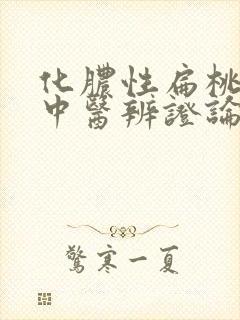 化膿性扁桃
中醫辨證論
驚寒一夏